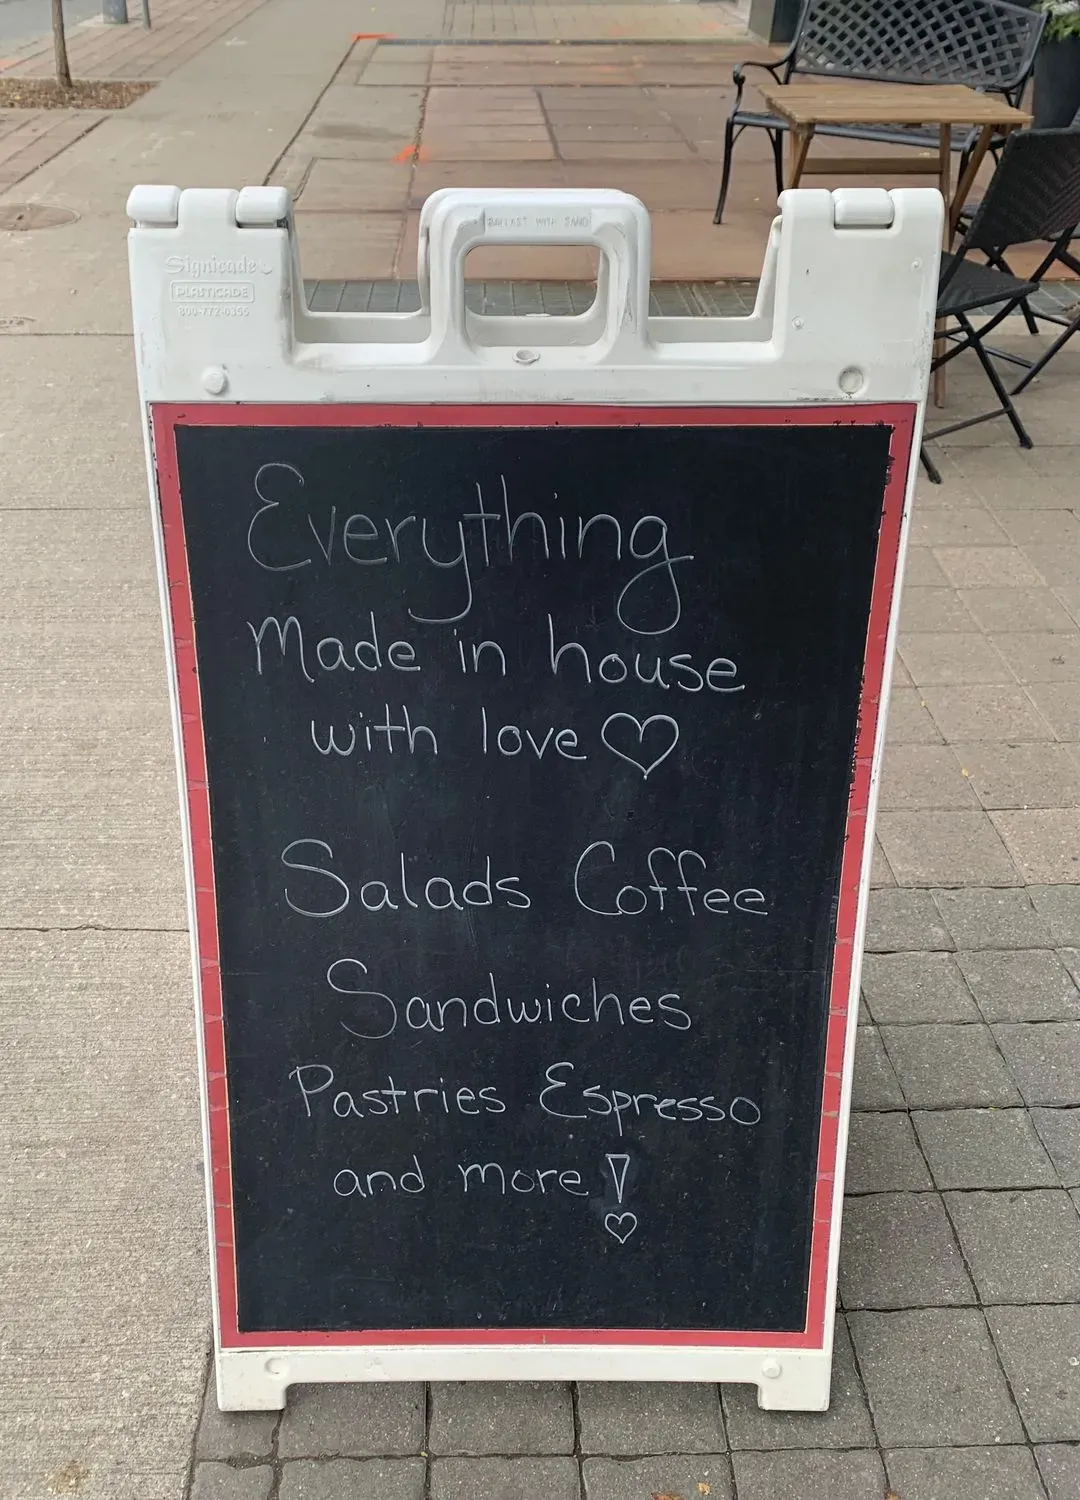 BALLAST WITH SAND
Signicade
PLASTICADE
800-772-0355
Everything
Made in house
with love ♡
Salads Coffee
Sandwiches
Pastries Espresso
and more!
♡